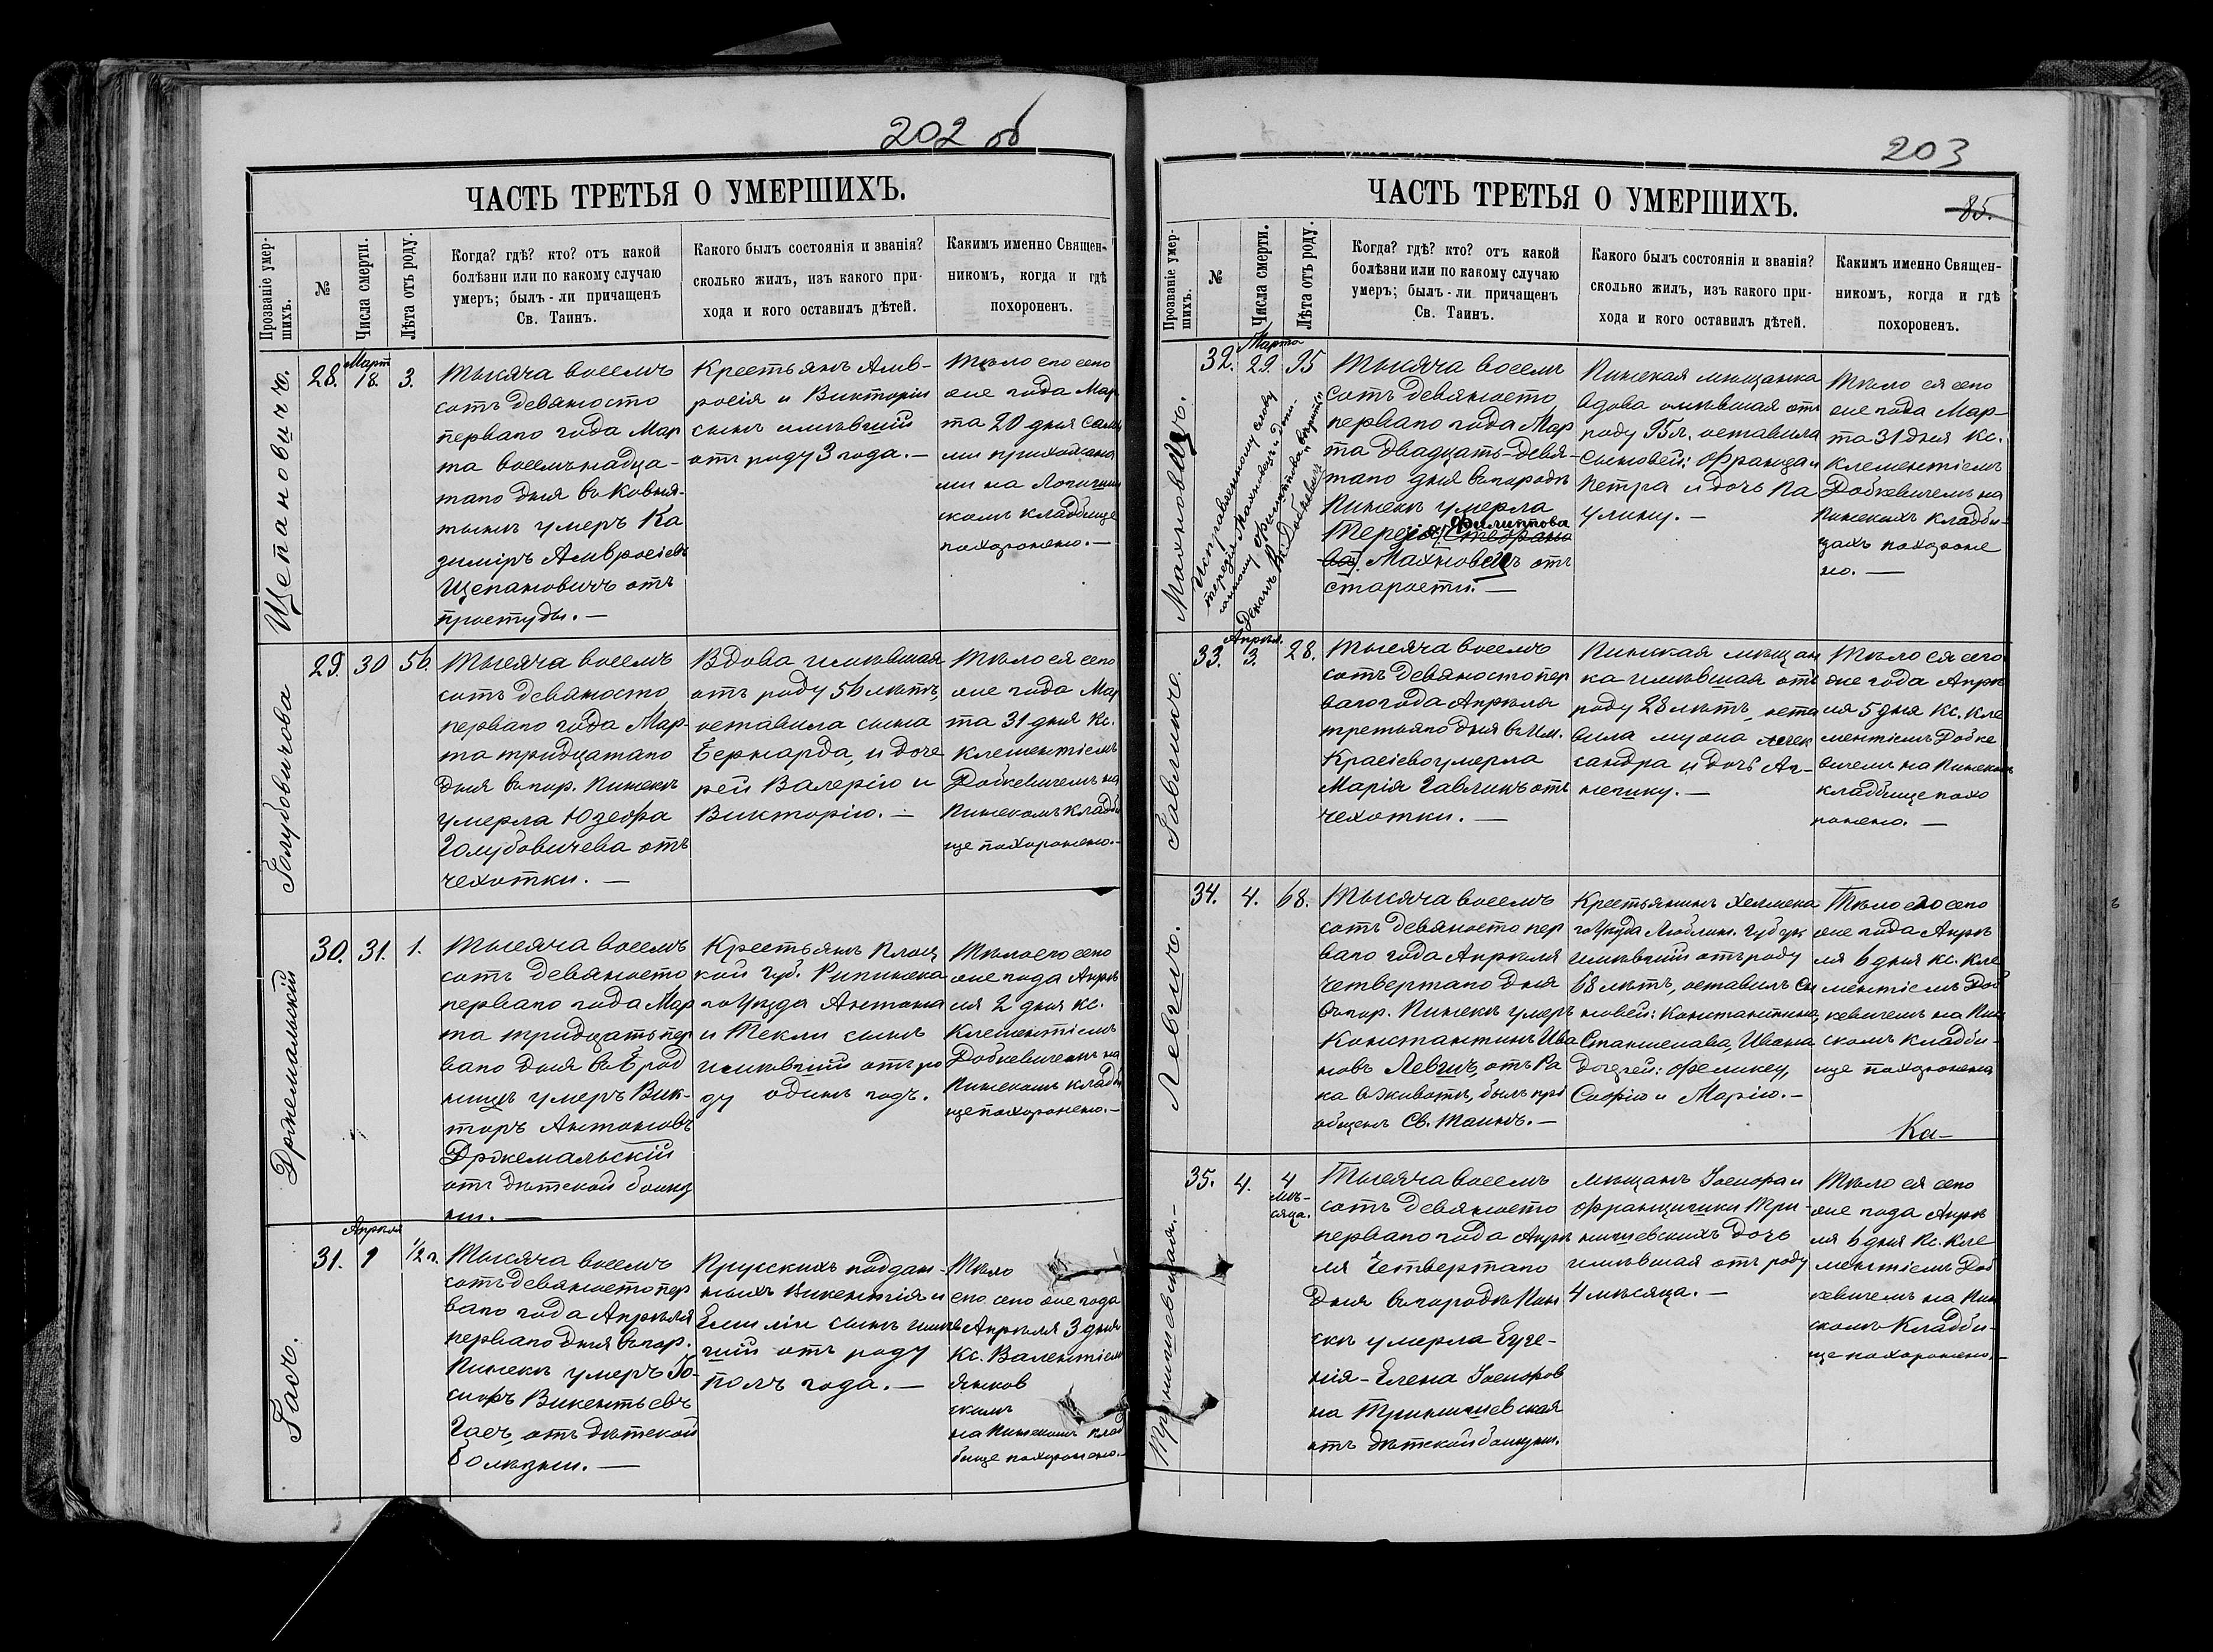 202 об
ЧАСТЬ ТРЕТЬЯ О УМЕРШИХЪ.
Прозваніе умер-
шихъ.
№
Числа смерти.
Лѣта отъ роду.
Когда? гдѣ? кто? отъ какой
болѣзни или по какому случаю
умеръ; былъ-ли причащенъ
Св. Таинъ.
Какого былъ состоянія и званія?
сколько жилъ, изъ какого при-
хода и кого оставилъ дѣтей.
Какимъ именно Священ-
никомъ, когда и гдѣ
похороненъ.
Щепановичъ.
28.
Март
18.
3.
Тысяча восемъ
сотъ девяносто
перваго года Мар
та восемънадца-
таго дня въ
умеръ Ка
зиміръ Амвросіевъ
Щепановичъ отъ
простуды. —
Крестьянъ Амв-
росія и Викторіи
сынъ имѣвшій
отъ роду 3 года. —
Тѣло его сего
же года Мар
та 20 дня сами
ми прихожана
ми на Логишин
скомъ кладбище
похоронено. —
Голубовичова
29.
30
56.
Тысяча восемъ
сотъ девяносто
перваго года Мар-
та тридцатаго
дня въ гор. Пинскѣ
умерла Юзефа
Голубовичева отъ
чехотки. —
Вдова имѣвшая
отъ роду 56 лѣтъ,
оставила сына
Бернарда, и доче
рей Валерію и
Викторію. —
Тѣло ея сего
же года Мар
та 31 дня Кс.
Клементіемъ
Добкевичемъ на
Пинскомъ кладби
ще похоронено. —
Држемальскій
30.
31.
1.
Тысяча восемъ
сотъ девяносто
перваго года Мар
та тридцать пер
ваго дня въ Брод
ницѣ умеръ Вик-
торъ Антоновъ
Држемальскій
отъ дѣтской болѣз
ни. —
Крестьянъ Плоц
кой губ. Рипинска
го Уѣзда Антона
и Текли сынъ
имѣвшій отъ ро
ду одинъ годъ.
Тѣло его сего
же года Апрѣ
ля 2 дня Кс.
Клементіемъ
Добкевичемъ на
Пинскомъ кладби
ще похоронено. —
Гасъ.
31.
Апрѣля
1
1/2 г.
Тысяча восемъ
сотъ девяносто пер
ваго года Апрѣля
перваго дня въ гор.
Пинскѣ умеръ Іо-
сифъ Викентьевъ
Гасъ, отъ дѣтской
болѣзни. —
Прусскихъ поддан-
ныхъ Викентія и
Емиліи сынъ имѣв
шій отъ роду
полъ года. —
Тѣло
его сего же года
Апрѣля 3 дня
Кс. Валентіемъ
Янков
скимъ
на Пинскомъ клад
бище похоронено. —
203
ЧАСТЬ ТРЕТЬЯ О УМЕРШИХЪ.
85.
Прозваніе умер-
шихъ.
№
Числа смерти.
Лѣта отъ роду.
Когда? гдѣ? кто? отъ какой
болѣзни или по какому случаю
умеръ; былъ-ли причащенъ
Св. Таинъ.
Какого былъ состоянія и званія?
сколько жилъ, изъ какого при-
хода и кого оставилъ дѣтей.
Какимъ именно Священ-
никомъ, когда и гдѣ
похороненъ.
Махновецъ.
Исправленному слову
Махновецъ и допи-
санному Филиппова вѣрить
Деканъ К. Добкевичъ
32.
Марта
29.
95
Тысяча восемъ
сотъ девяносто
перваго года Мар
та двадцать-девя-
таго дня въ городѣ
Пинскѣ умерла
Филиппова
Терезія [Стефано
ва] Махновецъ отъ
старости. —
Пинская мѣщанка
вдова имѣвшая отъ
роду 95 л. оставила
сыновей: Франца и
Петра и дочь Па
улину. —
Тѣло ея сего
же года Мар-
та 31 дня Кс.
Клементіемъ
Добкевичемъ на
Пинскихъ кладби-
щахъ похороне
но. —
Гавликъ.
33.
Апрѣл.
3.
28.
Тысяча восемъ
сотъ девяносто пер
ваго года Апрѣля
третьяго дня въ им.
Красіево умерла
Марія Гавликъ отъ
чехотки. —
Пинская мѣщан
ка имѣвшая отъ
роду 28 лѣтъ, оста
вила мужа Алек
сандра и дочь Аг-
нешку. —
Тѣло ея сего
же года Апрѣ
ля 5 дня Кс. Кле
ментіемъ Добке
вичемъ на Пинскомъ
кладбище похо
ронено. —
Левчичъ.
34.
4.
68.
Тысяча восемъ
сотъ девяносто пер
ваго года Апрѣля
четвертаго дня
въ гор. Пинскѣ умеръ
Константинъ Ива
новъ Левчичъ, отъ Ра
ка въ животѣ, былъ прі
общенъ Св. Таинъ. —
Крестьянинъ Хелмска
го Уѣзда Люблин. Губ.
имѣвшій отъ роду
68 лѣтъ, оставилъ сы
новей: Константина,
Станислава, Ивана
Дочерей: Феликсу,
Софію и Марію. —
Тѣло его сего
же года Апрѣ
ля 6 дня Кс. Кле
ментіемъ Доб
кевичемъ на Пин
скомъ кладби-
ще похоронено
Ка-
Тринишевская. —
35.
4.
4
мѣ-
сяца.
Тысяча восемъ
сотъ девяносто
перваго года Апрѣ
ля четвертаго
дня въ городѣ Пин
скѣ умерла Евге-
нія-Елена Іосифов
на Тринишевская
отъ дѣтской болѣзни.
Мѣщанъ Іосифа и
Францишки Три-
нишевскихъ дочь
имѣвшая отъ роду
4 мѣсяца. —
Тѣло ея сего
же года Апрѣ
ля 6 дня Кс. Кле
ментіемъ Доб
кевичемъ на Пин
скомъ Кладби-
ще похоронено. —